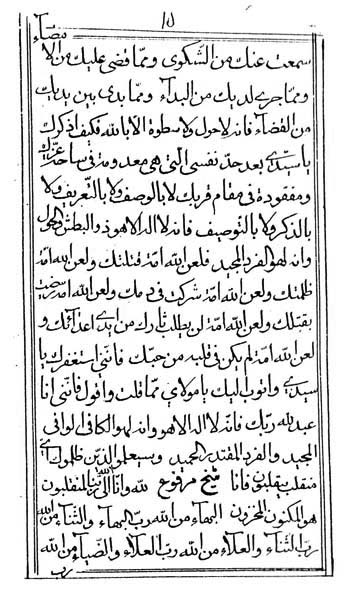 ١٥
سمعت عنك من الشّكوى وممّا قضى عليك من الا
وممّا جرى لديك من البداء وممّا بدى بين يديك
من القضاء فانه لا حول ولا سطوة الا بالله فكيف اذكرك
يا سيدي بعد حدّ نفسى التى هى معدومة فى ساحة عزّك
ومفقودة فى مقام قربك لا بالوصف ولا بالتّعريف ولا
بالذكر ولا بالتوصيف فانه لا اله الا هو ذو البطش والحول
وانه لهو الفرد المجيد فلعن الله امّة قتلتك ولعن الله امّة
ظلمتك ولعن الله امّة شركت فى دمك ولعن الله امّة رضيت
بقتلك ولعن الله امّة لن يطلب ثارك من ايدى اعدائك و
لعن الله امّة لم يكن فى قلبه من حبّك فانّنى استغفرك يا
سيدي واتوب اليك يا مولاي ممّا قلت واقول فانّنى انا
عبد لله ربّك فانّه لا اله الا هو وانه لهو الكافى الوافى
المجيد والفرد المقتدر الحميد وسيعلم الّذين ظلموا اي
منقلب ينقلبون فانا لله وانّا الى ربّنا لمنقلبون
هو المكنون المخزون البهاء من الله ربّ البهاء والثّناء من الله
ربّ الثّناء والعلاء من الله ربّ العلاء والضّياء من الله
ربّ